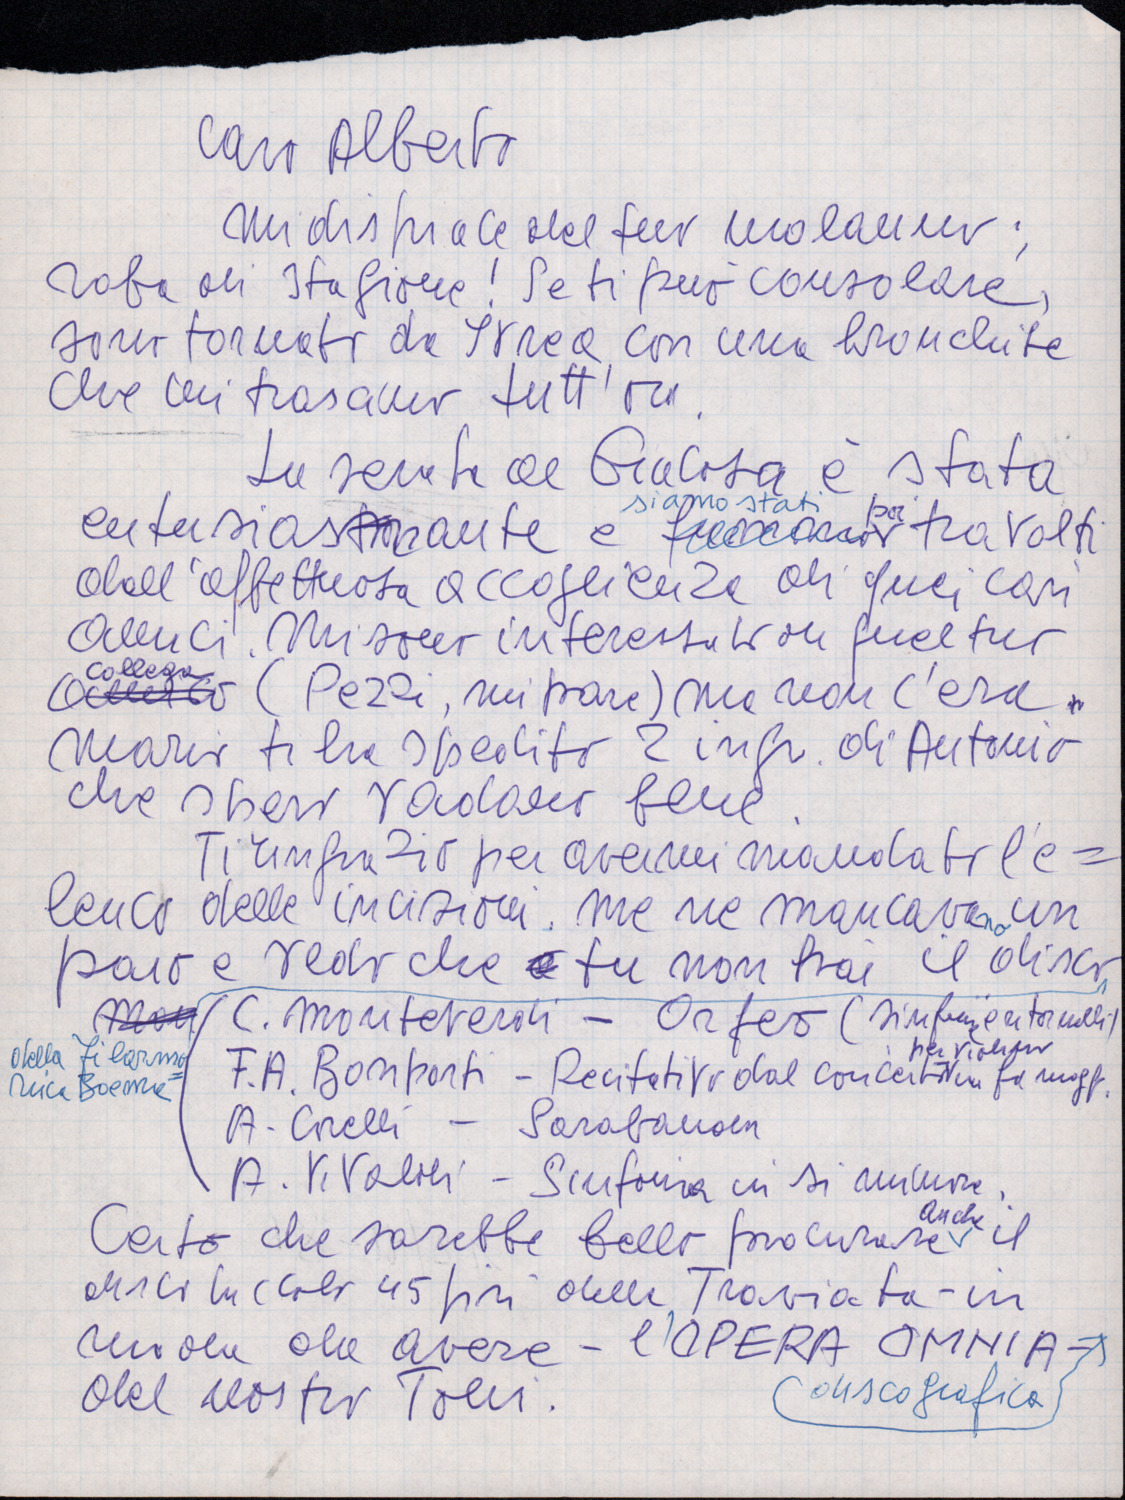 Caro Alberto
mi dispiace del tuo malanno;
roba di stagione! Se ti può consolare,
sono tornato da Ivrea con una bronchite
che mi trascino tutt'ora.
La serata al Giacosa è stata
siamo stati poi
entusiasmante e travolti
dall'affettuosa accoglienza di quei cari
amici. Mi sono interessato di quel tuo
collega
amico (Pezzi, mi pare) ma non c'era.
Mario ti ha spedito 2 ingr. di Antonio
che spero vadano bene.
Ti ringrazio per avermi mandato l'e=
lenco delle incisioni. Me ne mancavano un
paio e vedo che tu non hai il disco
Mon ( C. Monteverdi - Orfeo (Sinfonie e ritornelli)
della Filarmo
nica Boema =
per violino
F.A. Bonporti - Recitativo dal concerto in fa magg.
A. Corelli - Sarabanda
A. Vivaldi - Sinfonia in si minore.
anche
Certo che sarebbe bello procurare il
disco piccolo 45 giri della Traviata - in
modo da avere - l'OPERA OMNIA -
discografica
del nostro Toni.